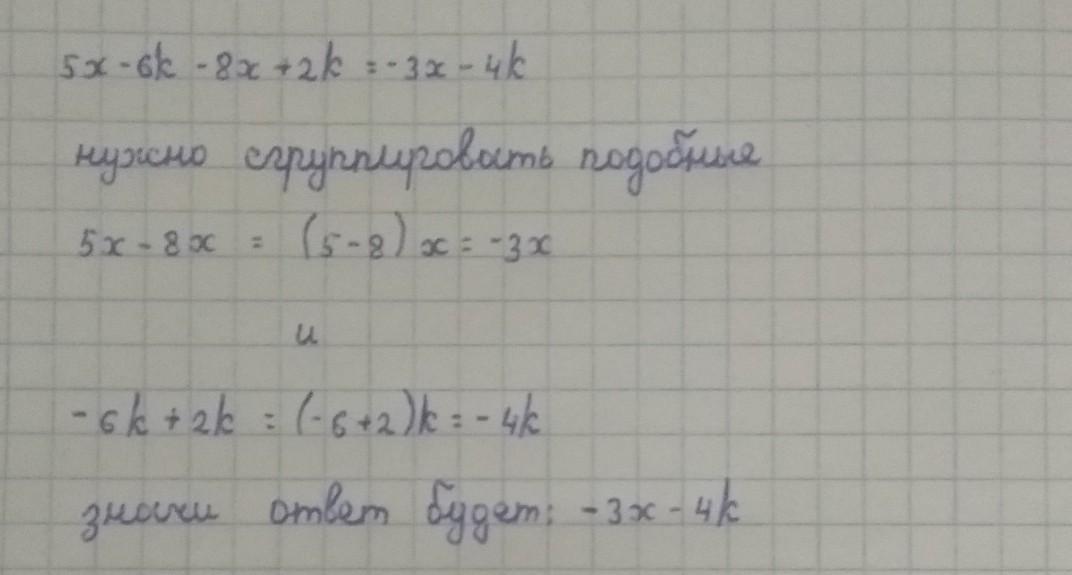 5x - 6k - 8x + 2k = -3x - 4k
нужно сгруппировать подобные
5x - 8x = (5 - 8) x = -3x
и
-6k + 2k = (-6+2)k = -4k
значи ответ будет: -3x - 4k